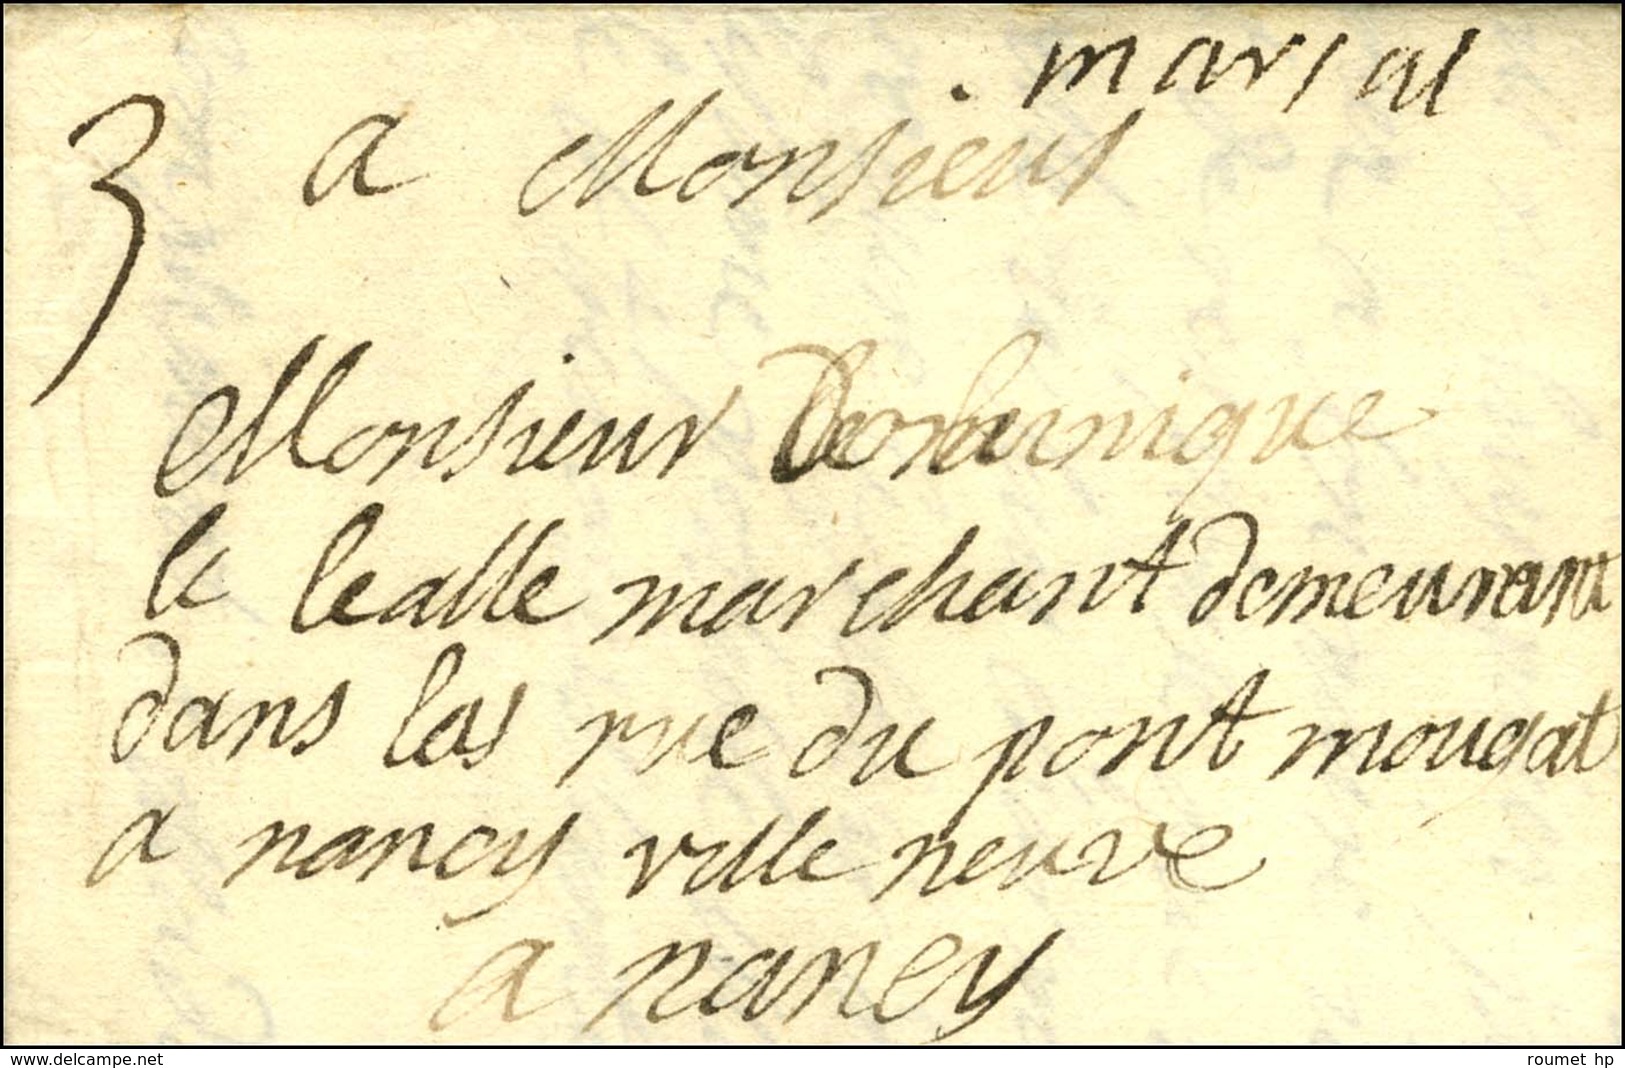 marsal
3 a Monsieur
Monsieur Dominique
le lealle marchant demeurant
dans las rue du pont mougat
a nancy ville neuve
a nancy
www.delcampe.net
roumet hp